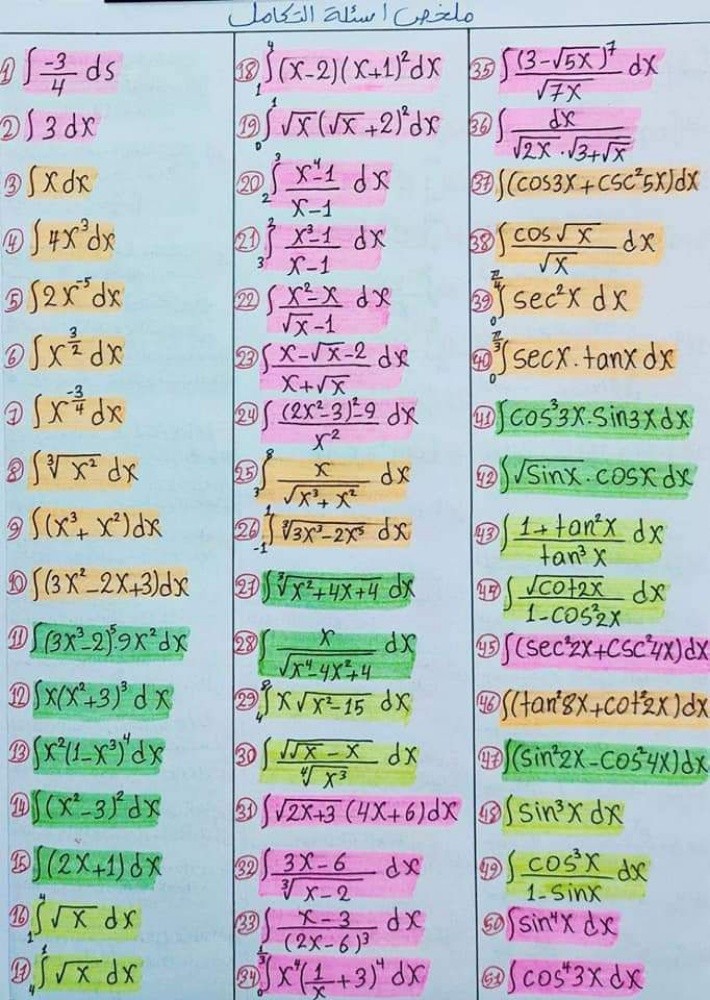 ملخص اسئلة التكامل
1 ∫ -3/4 ds
2 ∫ 3 dx
3 ∫ x dx
4 ∫ 4x³ dx
5 ∫ 2x⁻⁵ dx
6 ∫ x^(3/2) dx
7 ∫ x^(-3/4) dx
8 ∫ ∛(x²) dx
9 ∫ (x³ + x²) dx
10 ∫ (3x² - 2x + 3) dx
11 ∫ (3x³ - 2)⁵ . 9x² dx
12 ∫ x(x² + 3)³ dx
13 ∫ x²(1 - x³)⁴ dx
14 ∫ (x² - 3)² dx
15 ∫ (2x + 1) dx
16 ∫₁⁴ √x dx
17 ∫₄¹ √x dx
18 ∫₁⁴ (x - 2)(x + 1)² dx
19 ∫₀¹ √x (√x + 2)² dx
20 ∫₂³ (x⁴ - 1)/(x - 1) dx
21 ∫₃² (x³ - 1)/(x - 1) dx
22 ∫ (x² - x)/(√x - 1) dx
23 ∫ (x - √x - 2)/(x + √x) dx
24 ∫ ((2x² - 3)² - 9)/x² dx
25 ∫₃⁸ x/√(x³ + x²) dx
26 ∫₋₁¹ ∛(3x³ - 2x⁵) dx
27 ∫ ∛(x² + 4x + 4) dx
28 ∫ x/√(x⁴ - 4x² + 4) dx
29 ∫₄⁸ x √(x² - 15) dx
30 ∫ √(√x - x)/∜(x³) dx
31 ∫ √(2x + 3) (4x + 6) dx
32 ∫ (3x - 6)/∛(x - 2) dx
33 ∫ (x - 3)/(2x - 6)³ dx
34 ∫₀^(1/3) x⁴(1/x + 3)⁴ dx
35 ∫ (3 - √5x)⁷/√7x dx
36 ∫ dx/(√2x . √(3 + √x))
37 ∫ (cos3x + csc²5x) dx
38 ∫ cos√x/√x dx
39 ∫₀^(π/4) sec²x dx
40 ∫₀^(π/3) secx . tanx dx
41 ∫ cos³3x . sin3x dx
42 ∫ √sinx . cosx dx
43 ∫ (1 + tan²x)/tan³x dx
44 ∫ √cot2x/(1 - cos²2x) dx
45 ∫ (sec²2x + csc²4x) dx
46 ∫ (tan²8x + cot²2x) dx
47 ∫ (sin²2x - cos²4x) dx
48 ∫ sin³x dx
49 ∫ cos³x/(1 - sinx) dx
50 ∫ sin⁴x dx
51 ∫ cos⁴3x dx